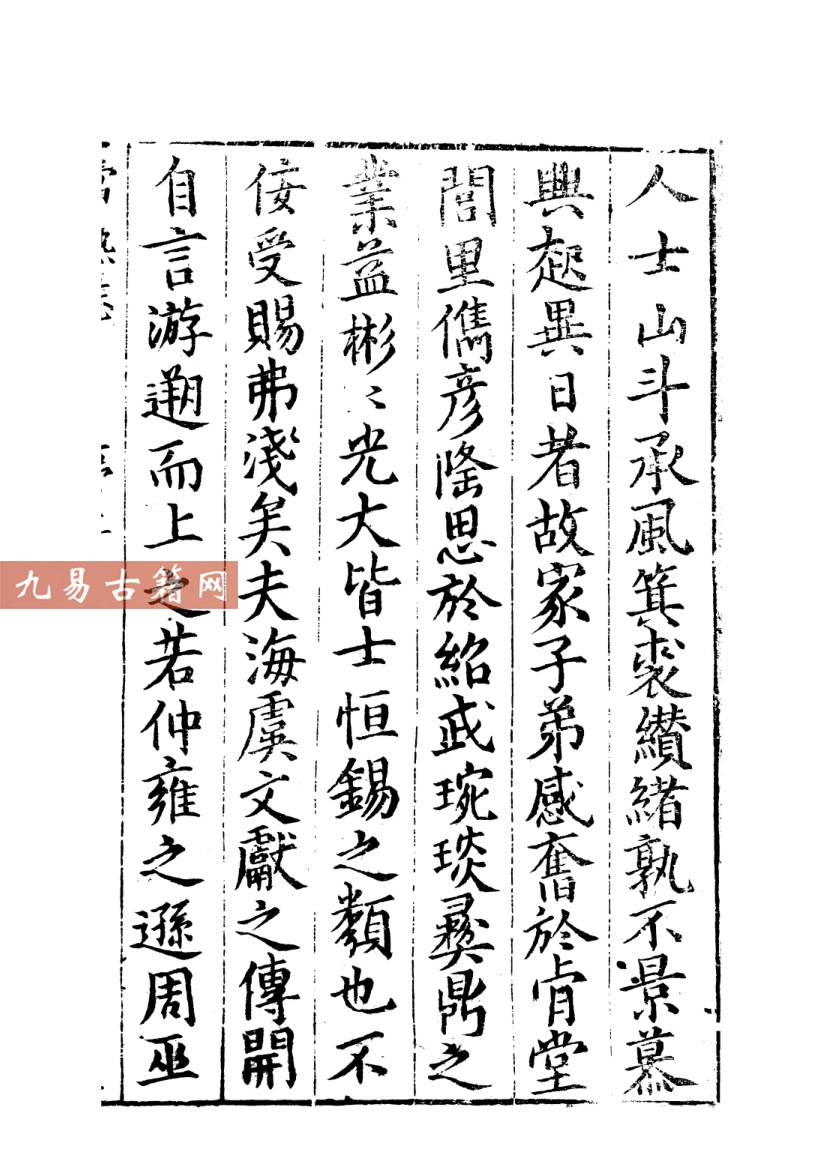 人士山斗承風箕裘纘緒孰不景慕
興起異日者故家子弟感奮於肯堂
閭里儁彥隆思於紹武琬琰彝鼎之
業益彬〻光大皆士恒錫之類也不
佞受賜弗淺矣夫海虞文獻之傳開
自言游遡而上之若仲雍之遜周巫
九易古籍网